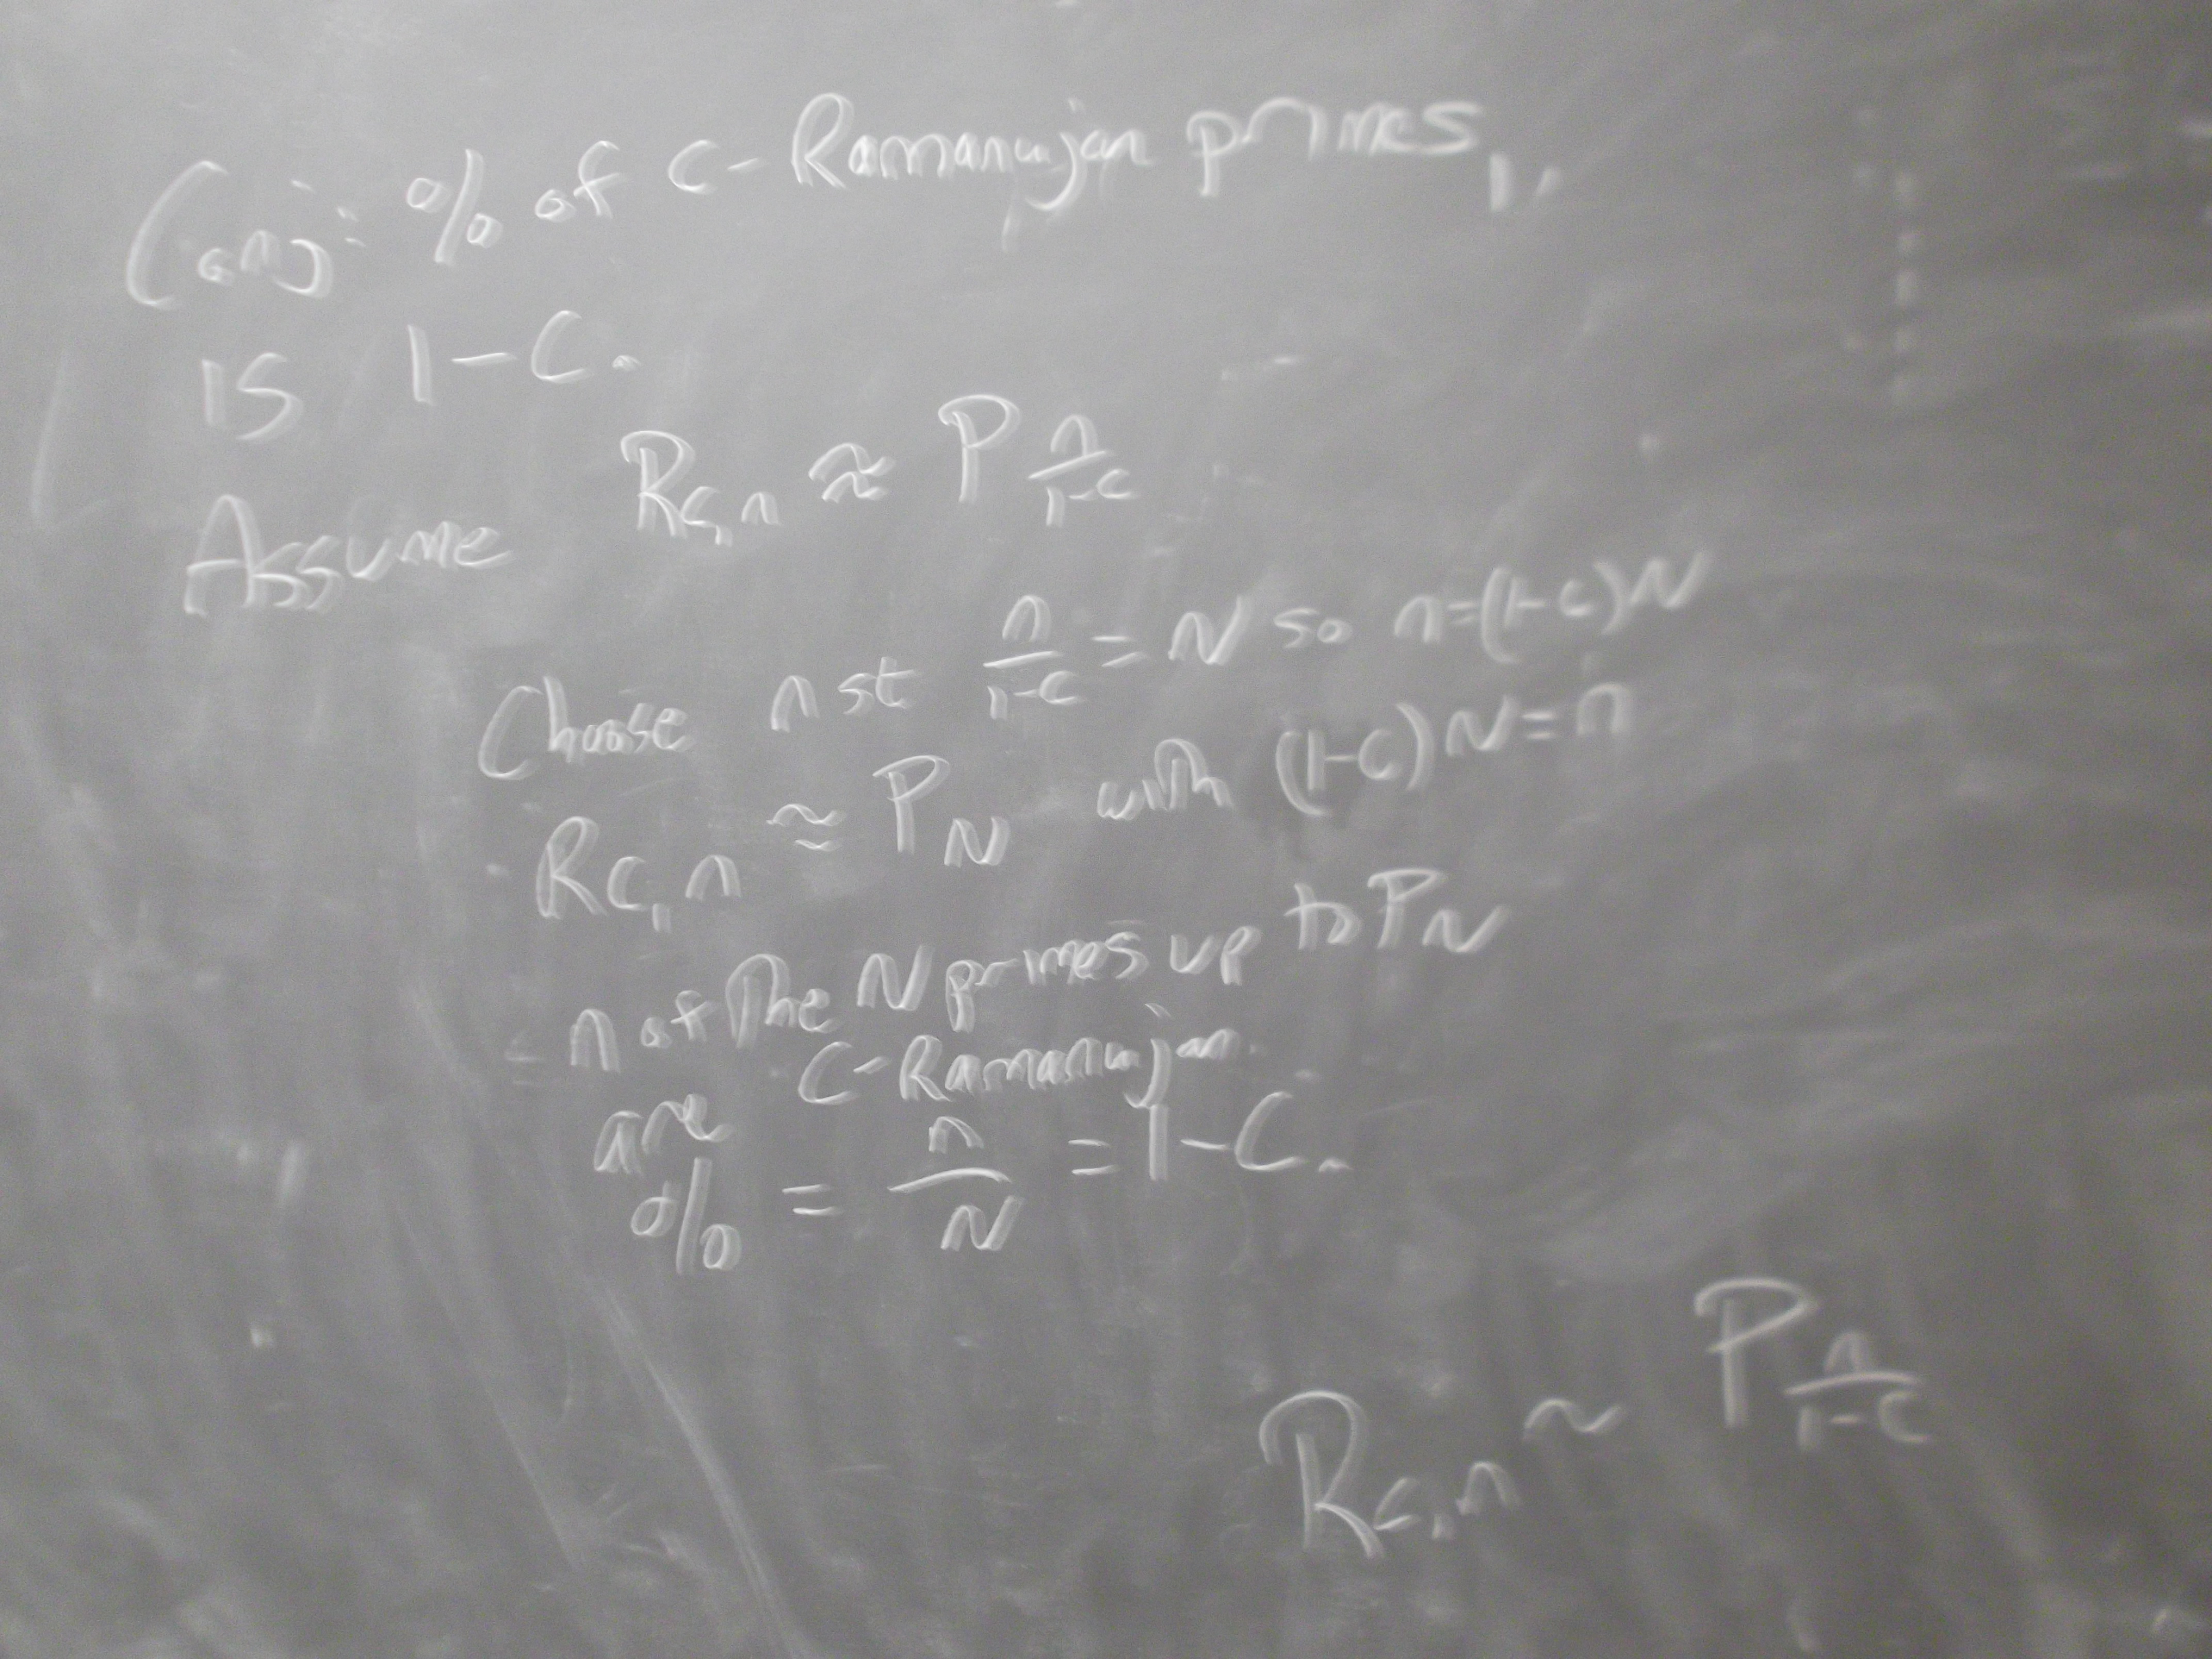 Conj: % of c-Ramanujan primes
is 1-c.
Assume R_{c,n} ≈ P_{n/(1-c)}
Choose n st n/(1-c) = N so n=(1-c)N
R_{c,n} ≈ P_N with (1-c)N=n
n of the N primes up to P_N
are c-Ramanujan.
% = n/N = 1-c.
R_{c,n} ~ P_{n/(1-c)}